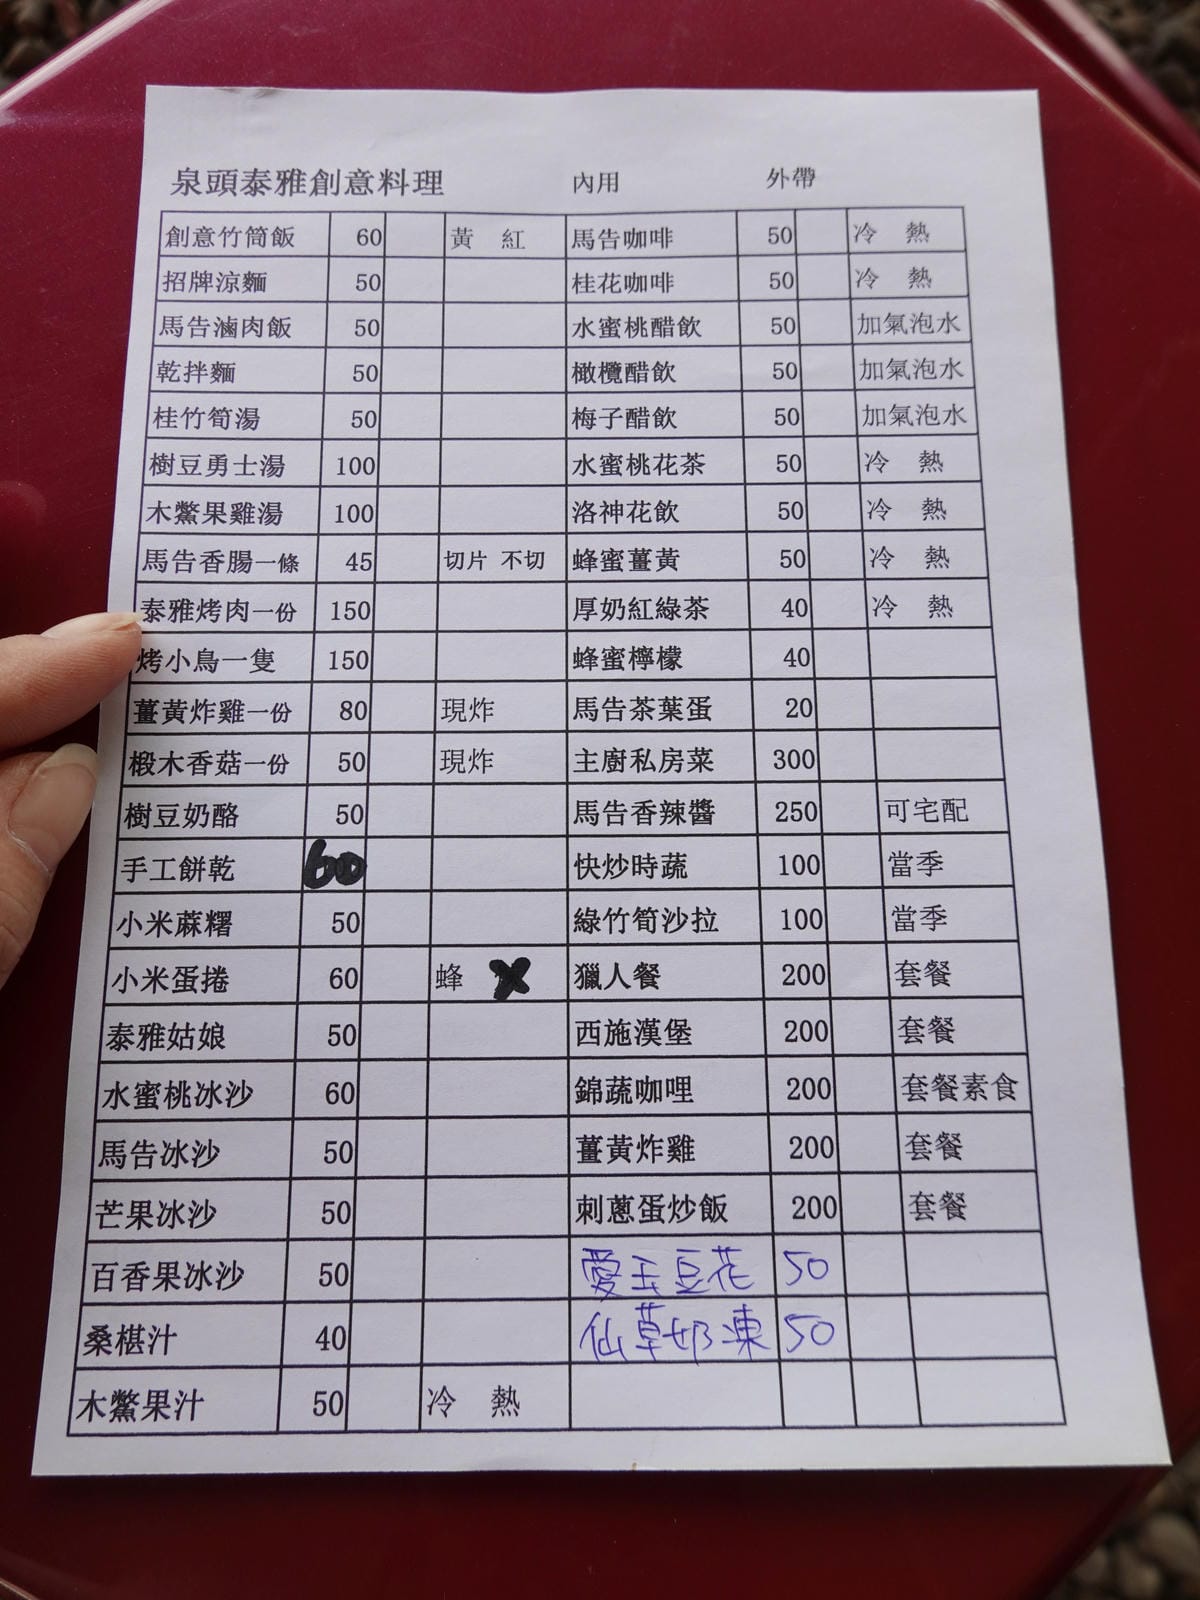 泉頭泰雅創意料理 內用 外帶
創意竹筒飯 60 黃 紅 馬告咖啡 50 冷 熱
招牌涼麵 50 桂花咖啡 50 冷 熱
馬告滷肉飯 50 水蜜桃醋飲 50 加氣泡水
乾拌麵 50 橄欖醋飲 50 加氣泡水
桂竹筍湯 50 梅子醋飲 50 加氣泡水
樹豆勇士湯 100 水蜜桃花茶 50 冷 熱
木虌果雞湯 100 洛神花飲 50 冷 熱
馬告香腸一條 45 切片 不切 蜂蜜薑黃 50 冷 熱
泰雅烤肉一份 150 厚奶紅綠茶 40 冷 熱
烤小鳥一隻 150 蜂蜜檸檬 40
薑黃炸雞一份 80 現炸 馬告茶葉蛋 20
椴木香菇一份 50 現炸 主廚私房菜 300
樹豆奶酪 50 馬告香辣醬 250 可宅配
手工餅乾 60 快炒時蔬 100 當季
小米蔴糬 50 綠竹筍沙拉 100 當季
小米蛋捲 60 蜂 獵人餐 200 套餐
泰雅姑娘 50 西施漢堡 200 套餐
水蜜桃冰沙 60 錦蔬咖哩 200 套餐素食
馬告冰沙 50 薑黃炸雞 200 套餐
芒果冰沙 50 刺蔥蛋炒飯 200 套餐
百香果冰沙 50 愛玉豆花 50
桑椹汁 40 仙草奶凍 50
木虌果汁 50 冷 熱